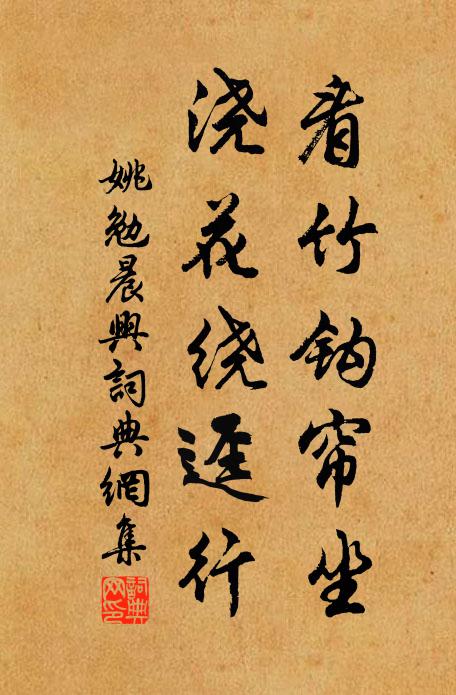 看竹钩帘坐
浇花绕迳行
姚勉晨興詞典網集
詞典網印